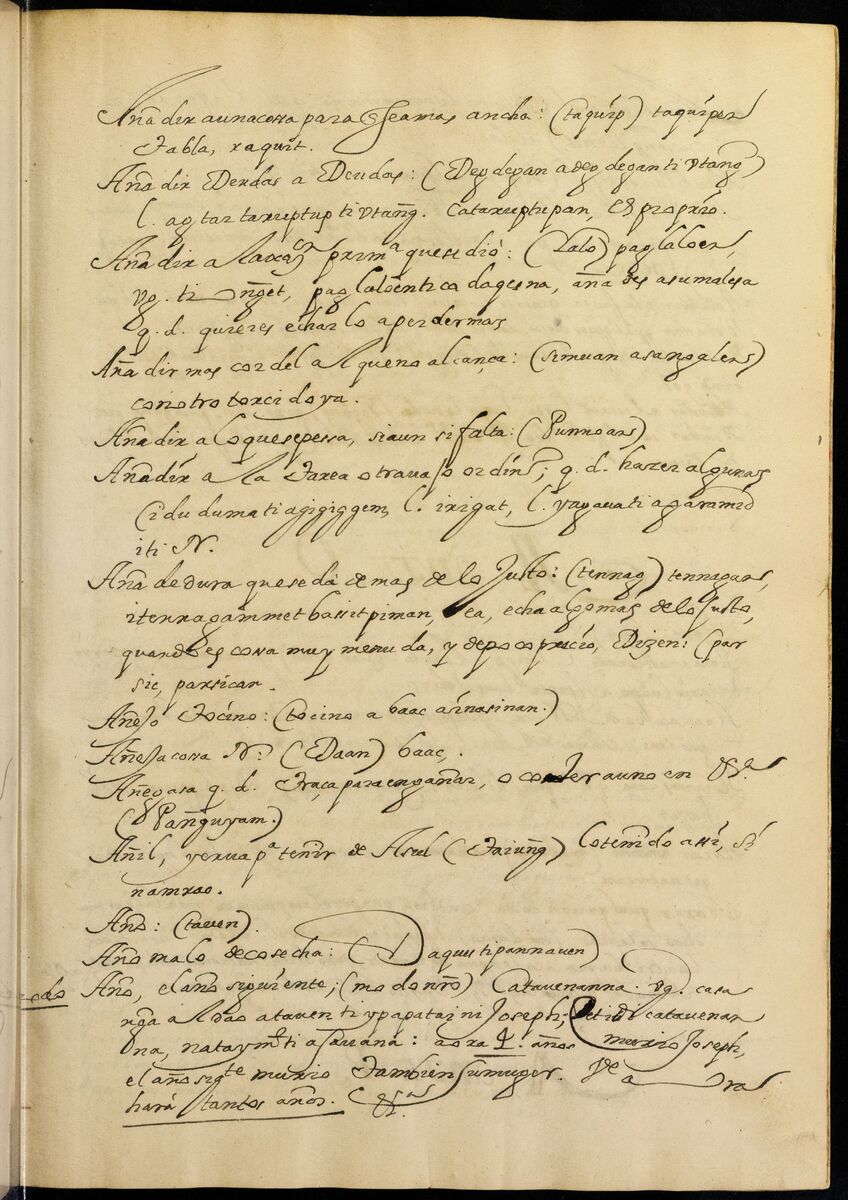 Añadir aunacossa para q̃ seamas ancha: (taquip) taquipen
Tabla, raquit.
Añadir Deudas a Deudas: (Deg degan a deg degan ti vtang)
l. ag tar taruptup ti vtang̃. Cataruptupan, Es proprio.
Añadir a la raz.ᵒⁿ primᵃ quese dió: (Lalo) paglaloen,
vg. ti unget, paglaloentica dagesna, aña des asumalesa
q. d. quieres echarlo aperdermas
Añadir mas cordel al queno alcança: (simuan asangalen)
conotro torcidoya.
Añadir aloquesepessa, siaun si falta: (Punnoan)
Añadir a la Tarea otrauajo ordinº; q. d. hazer algunas
(i du duma ti agigiggem, l. irigat, l. yagaua ti agaramid
iti N.
Añadedura quese dá demas de lo Justo: (tennag) tennagan,
itennagammet bassit piman, ea, echa algomas delo Justo,
quando es cossa muy menuda, y depoco precio, Dizen: (par
sic, parsican.
Añejo Tocino: (tocino a baac a inasinan.)
Añeja cossa N.ᵃ (Daan) baac,.
Añegasa q. d. Traça para engañar, o coxer a uno en &ª.
(Panguyam.)
Añil, yerua pᵃ teñir de Asul (Taiung̃) loteñido assi, Si
namrao.
Año: (tauen).
Año malo de cosecha: (Daques ti pannauen)
Año, el año siguiente; (modo nr̃o) Catauenanna. vg. casa
ng̃a a l Dao a tauen ti ypapatai ni Joseph; Set idi catauenan
na, natay mᵗ ti asauana: aora 4. años murio Joseph,
el año sigᵗᵉ murio Tambien sumuger. Vᵉ a ra
hará tantos años. &ᵃ